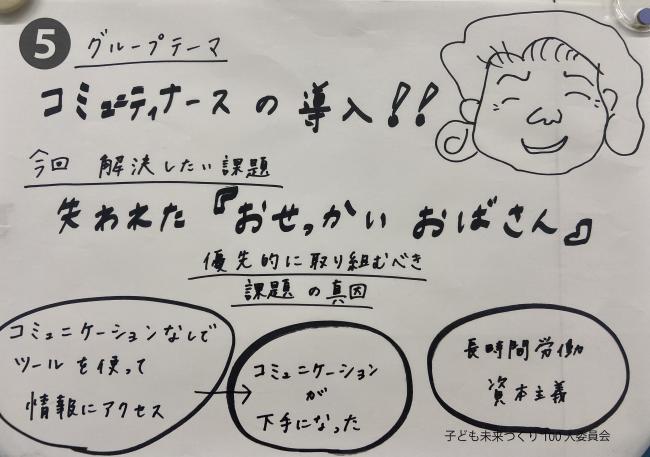 5 グループテーマ
コミュニティナースの導入!!
今回 解決したい課題
失われた『おせっかいおばさん』
優先的に取り組むべき
課題の真因
コミュニケーションなしで
ツールを使って
情報にアクセス
コミュニケーション
が
下手になった
長時間労働
資本主義
子ども未来づくり100人委員会